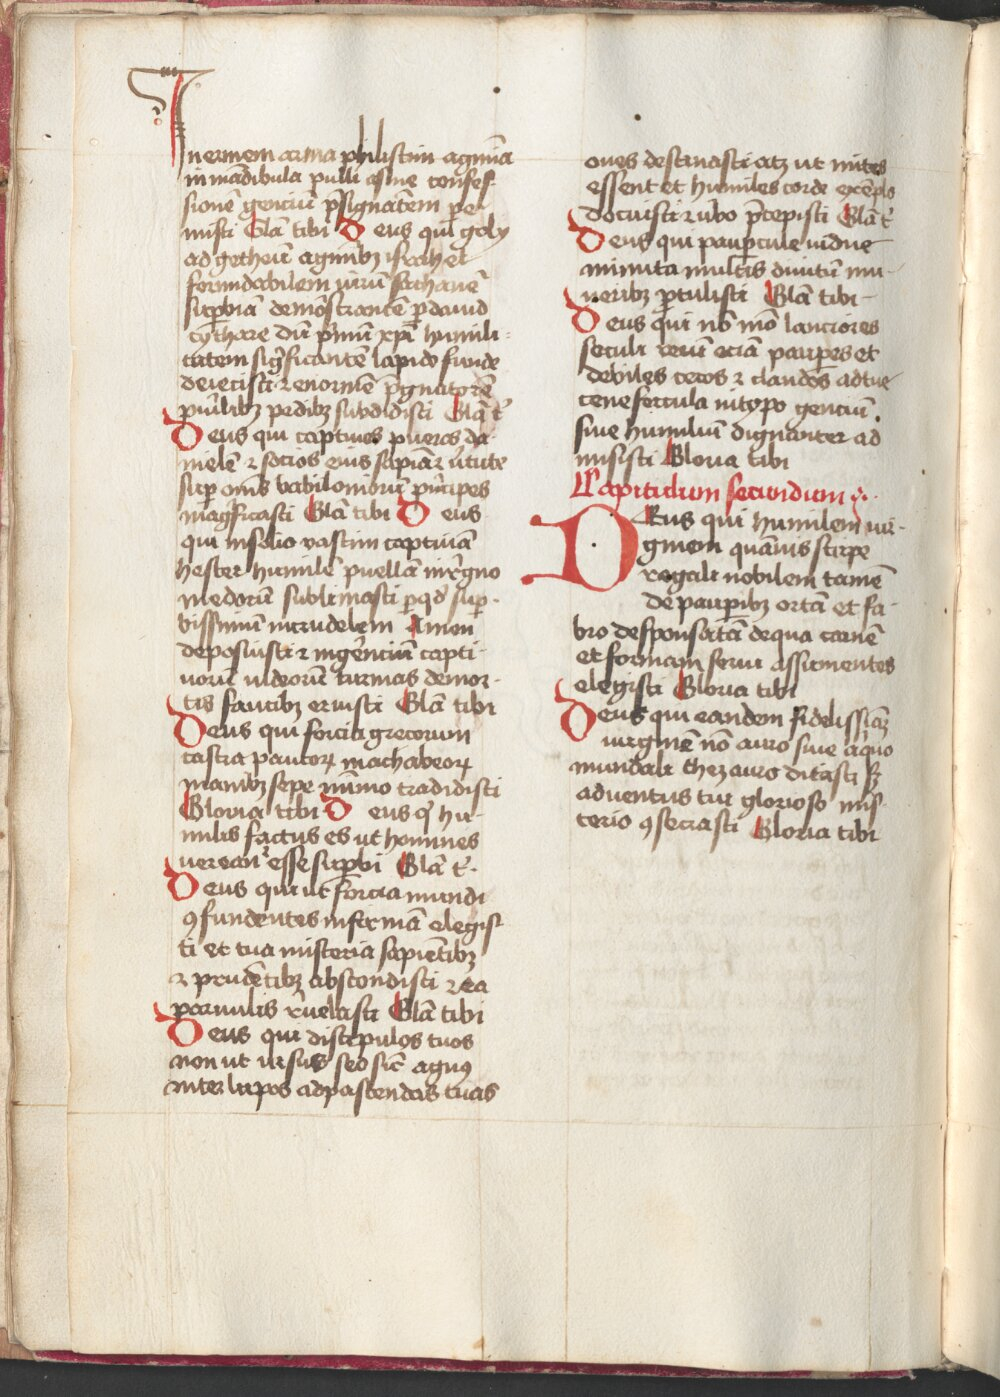 Inermem arma philistim agmīa
in mādibula pulli asine confes-
sionē genciū p̄signātem per-
misti Gl̄a tibi Deus qui goly
ad getheū agmībꝫ israhel et
formidabilem uirū sathane
sup̱biā demōstrantē ꝑ dauid
cytharedū p̄mū xp̄i humili-
tatem sigᷓficantē lapide funde
deiecisti ⁊ enormē p̱gnatorē
puīlibꝫ pedibꝫ subdidisti Gl̄a t̄
Deus qui captiuos pueros da-
nielē ⁊ socios eius sapīa ⁊ ūtute
sup̱ om̄s babiloniorū pⁱncipes
magᷓficasti Gl̄a tibi Deus
qui in solio vastim captiuā
hester humilē puellā in regno
medorū sublimasti ꝑ qd̄ sup̱-
bissimū incrudelem Amon
deposuisti ⁊ ingēnciū capti-
uorū iudeorū turmas de mor-
tis faucibꝫ eruisti Gl̄a tibi
Deus qui forcia grecorum
castra paucoꝝ machabeoꝝ
manibꝫ sepe nīmo tradidisti
Gloria tibi Deus qⁱ hu-
milis factus es ut homines
uereant᷑ esse sup̱bi Gl̄a t̄.
Deus qui ut forcia mundi
ꝯfunderites infirmā elegis-
ti et tua misteria sapiētibꝫ
⁊ prudētibꝫ abscondisti ⁊ ea
paruulis r̄uelasti Gl̄a tibi
Deus qui discipulos tuos
non ut ursus sed sic̄ agnꝯ
inter lupos ad pascendas tuas
oues destinasti atꝫ ut mites
essent et humiles corde exēplo
docuisti ⁊ ūbo p̄cepisti Gl̄a t̄
Deus qui paup̱cule uidue
minuta multis diuitū mu-
neribꝫ p̱tulisti Gl̄a tibi
Deus qui nō mō lanciores
seculi reuū eciā paup̱es et
debiles cecos ⁊ claudos ad tue
cene fercula in typo genciū
siue humiliū dignanter ad
misisti Gloria tibi
Capitulum secundum
Deus qui humilem uir-
ginem quāuis stirpe
regali nobilem tamē
de paup̱ibꝫ ortā et fa-
bro desponsatā de qua carnē
et formam serui assumentes
elegisti Gloria tibi
Deus qui eandem fidelissīaꝫ
uirginē nō auro siue aliquo
mundali thezauro ditasti sꝫ
aduentus tui glorioso mis-
terio ꝯsecrasti Gloria tibi